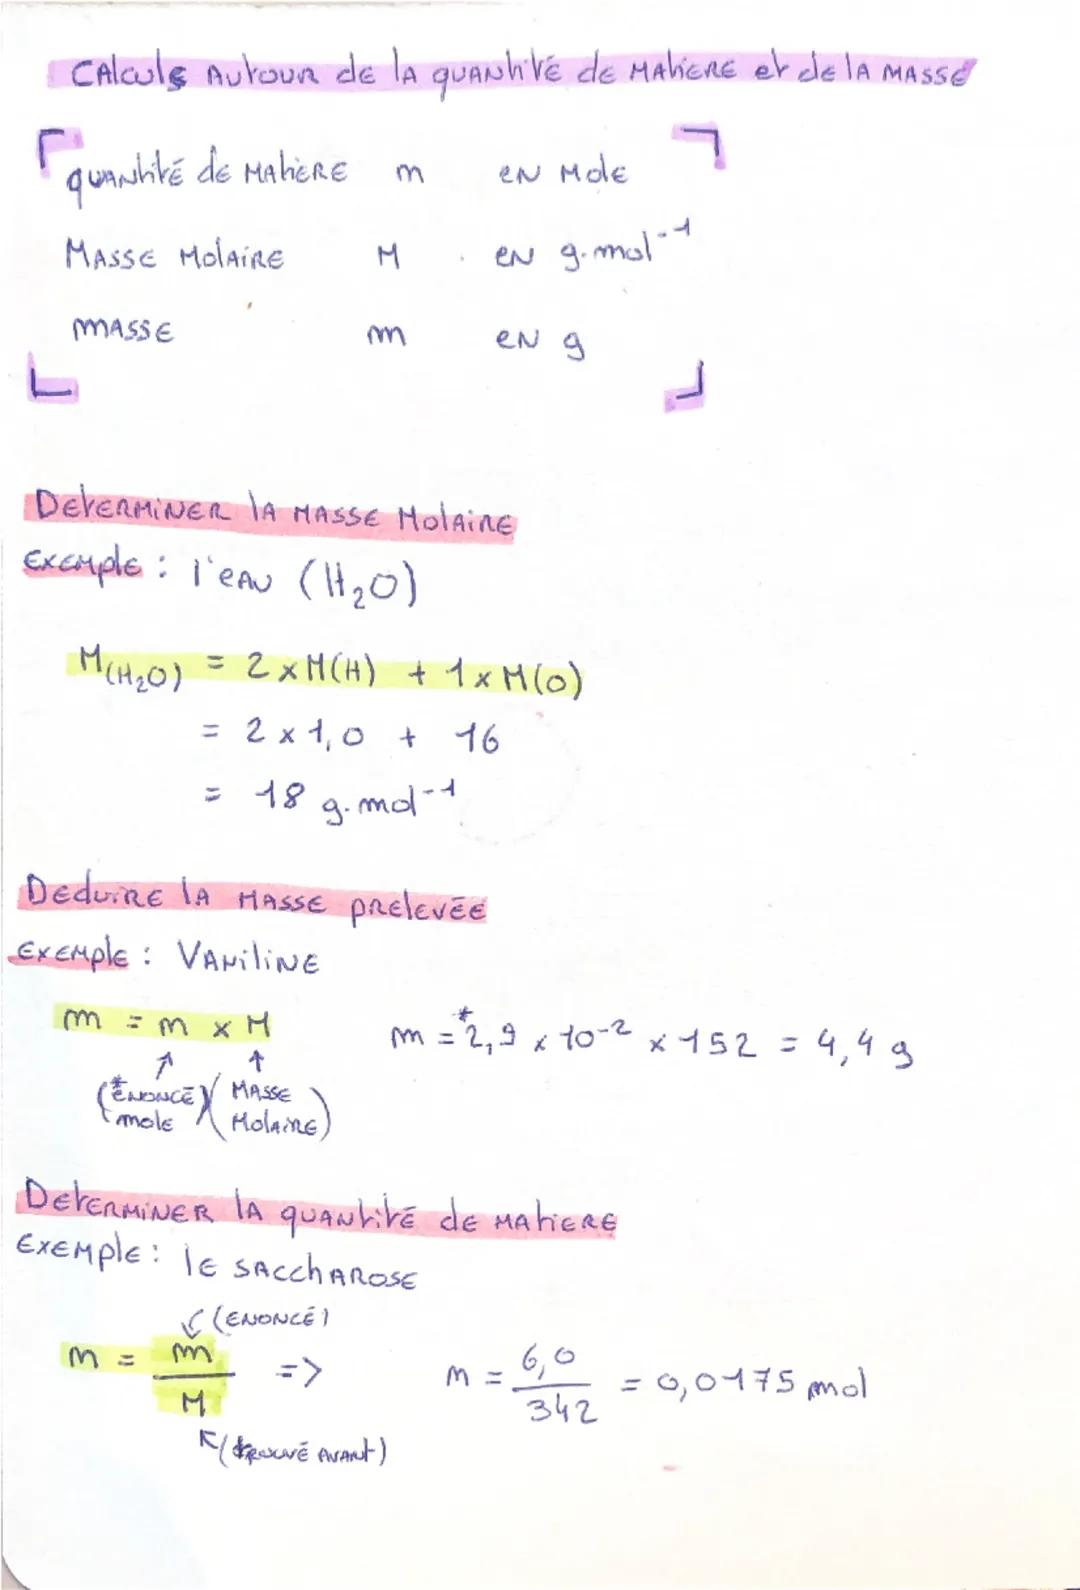 CAlculs AUtOUR de lA quANtité de MAtiERE et de lA MASSE
quANtité de MAtiÈRE n eN MOlE
MASSE MOlAiRE M eN g.mol-1
mASSE m eN g
DétERMiNER lA MASSE MOlAiRE
ExEMplE : l'eAU (H2O)
M(H2O) = 2 x M(H) + 1 x M(O)
= 2 x 1,0 + 16
= 18 g.mol-1
DéduiRE lA MASSE pRElEvÉE
ExEMplE : VANiliNE
m = n x M m = *2,9 x 10-2 x 152 = 4,4 g
(*ÉNONCÉ mole) (MASSE MOlAiRE)
DétERMiNER lA quANtité de MAtiERE
ExEMplE : lE SACChAROSE
(ÉNONCÉ)
n = m/M => n = 6,0/342 = 0,0175 mol
(tROUvÉ AVANt)